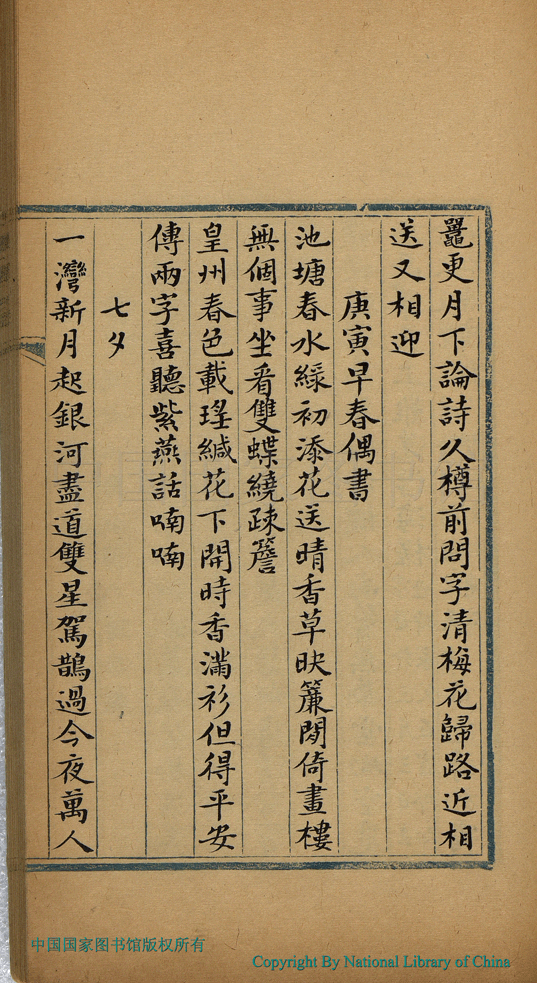 鼉更月下論詩久樽前問字清梅花歸路近相
送又相迎
庚寅早春偶書
池塘春水綠初添花送晴香草映簾閒倚畫樓
無個事坐看雙蝶繞疎簷
皇州春色載瑤緘花下開時香滿衫但得平安
傳兩字喜聽紫燕話喃喃
七夕
一灣新月起銀河盡道雙星駕鵲過今夜萬人
中国国家图书馆版权所有
Copyright By National Library of China